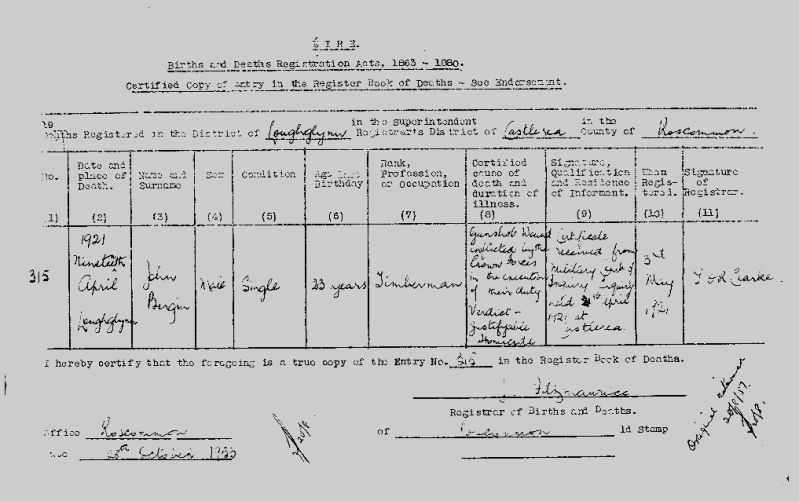 ÉIRE.
Births and Deaths Registration Acts, 1863 - 1880.
Certified Copy of entry in the Register Book of Deaths - See Endorsement.
19
Deaths Registered in the District of Loughglynn in the Superintendent Registrar's District of Castlerea in the County of Roscommon.
No.
Date and place of Death.
Name and Surname
Sex
Condition
Age last Birthday
Rank, Profession, or Occupation
Certified cause of death and duration of illness.
Signature, Qualification and Residence of Informant.
When Registered.
Signature of Registrar.
(1) (2) (3) (4) (5) (6) (7) (8) (9) (10) (11)
315
1921 Nineteenth April Loughglynn
John Bergin
Male
Single
23 years
Timberman
Gunshot Wound inflicted by the Crown Forces in the execution of their duty
Verdict - justifiable Homicide
Certificate received from Military Court of Inquiry inquiry held April 1921 at Castlerea
3rd May 1921
Clarke
I hereby certify that the foregoing is a true copy of the Entry No. 315 in the Register Book of Deaths.
J. Fitzmaurice
Registrar of Births and Deaths.
Office Roscommon
of Roscommon 1d Stamp
October
20/8
Original returned
20/8/57